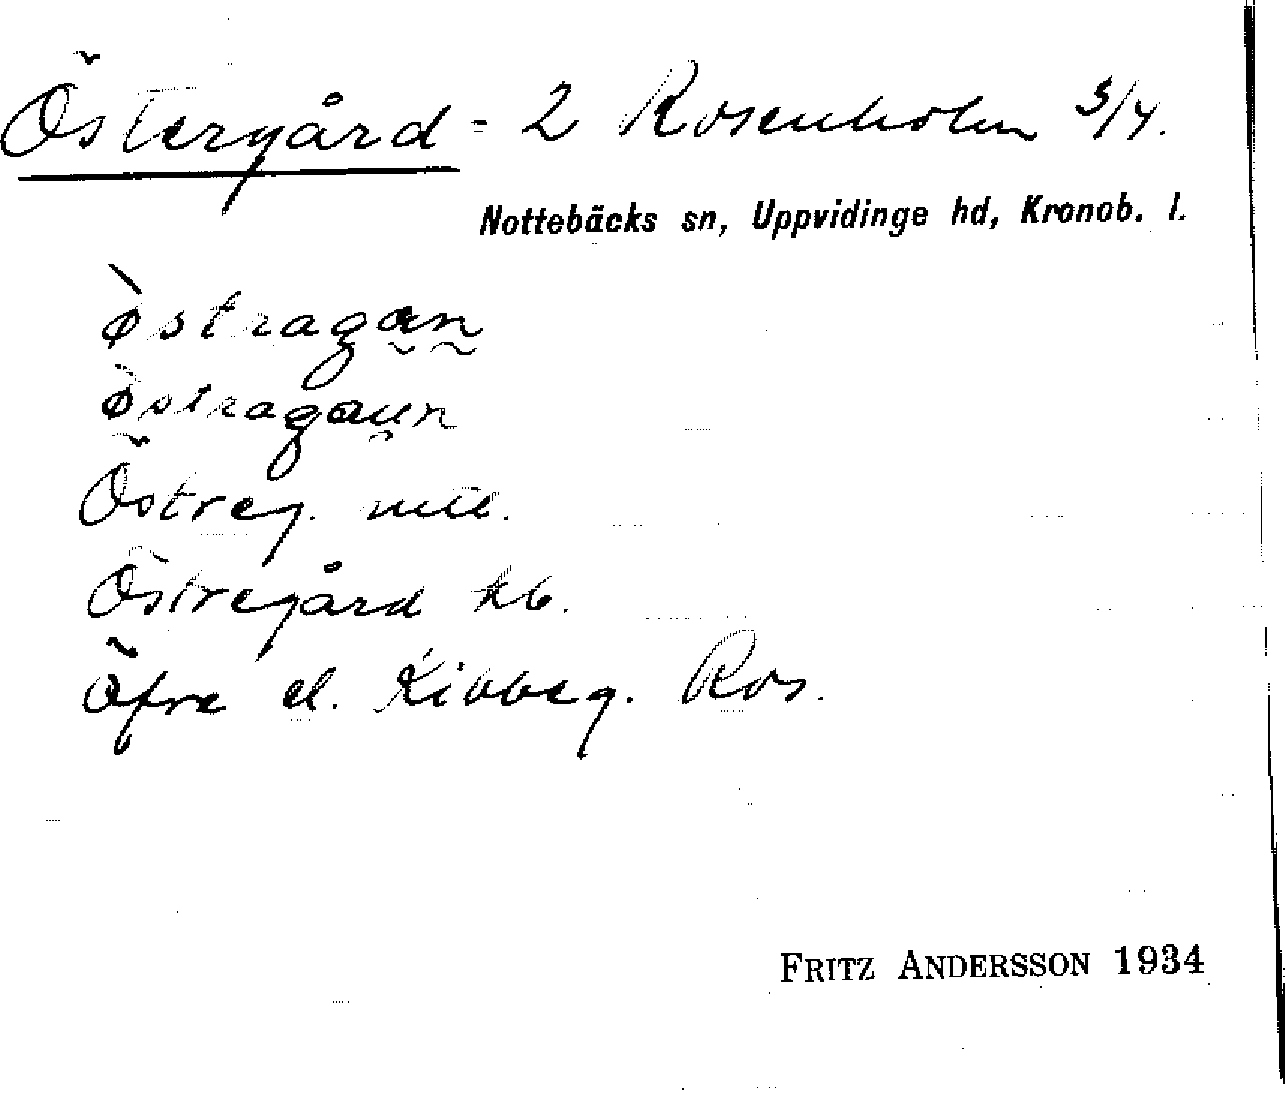 Östergård = 2 Rosenholm 3/4.
Nottebäcks sn, Uppvidinge hd, Kronob. l.
östragan
östragaun
Östreg. mtl.
Östregård kb.
Öfre el. Kibbeg. Ros.
FRITZ ANDERSSON 1934